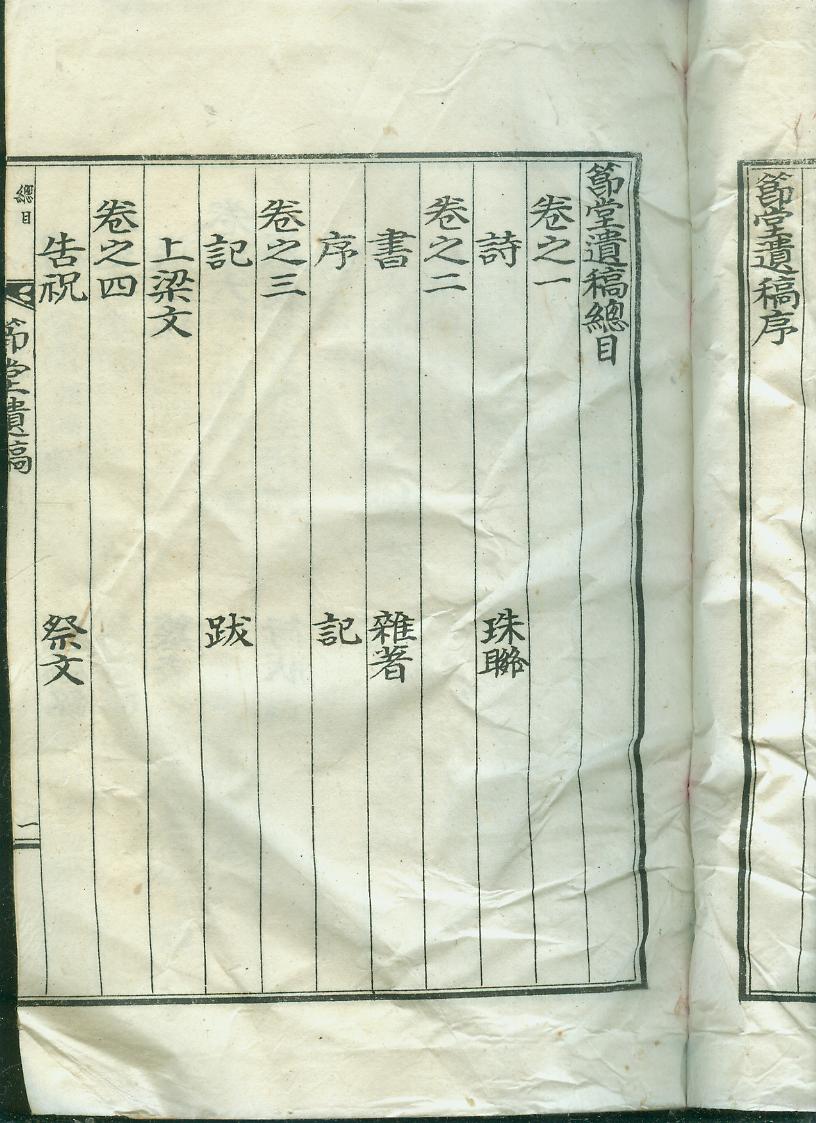 節堂遺稿序
節堂遺稿總目
卷之一
詩　珠聯
卷之二
書　雜著
序　記
卷之三
記　跋
上梁文
卷之四
告祝　祭文
總目
節堂遺稿
一